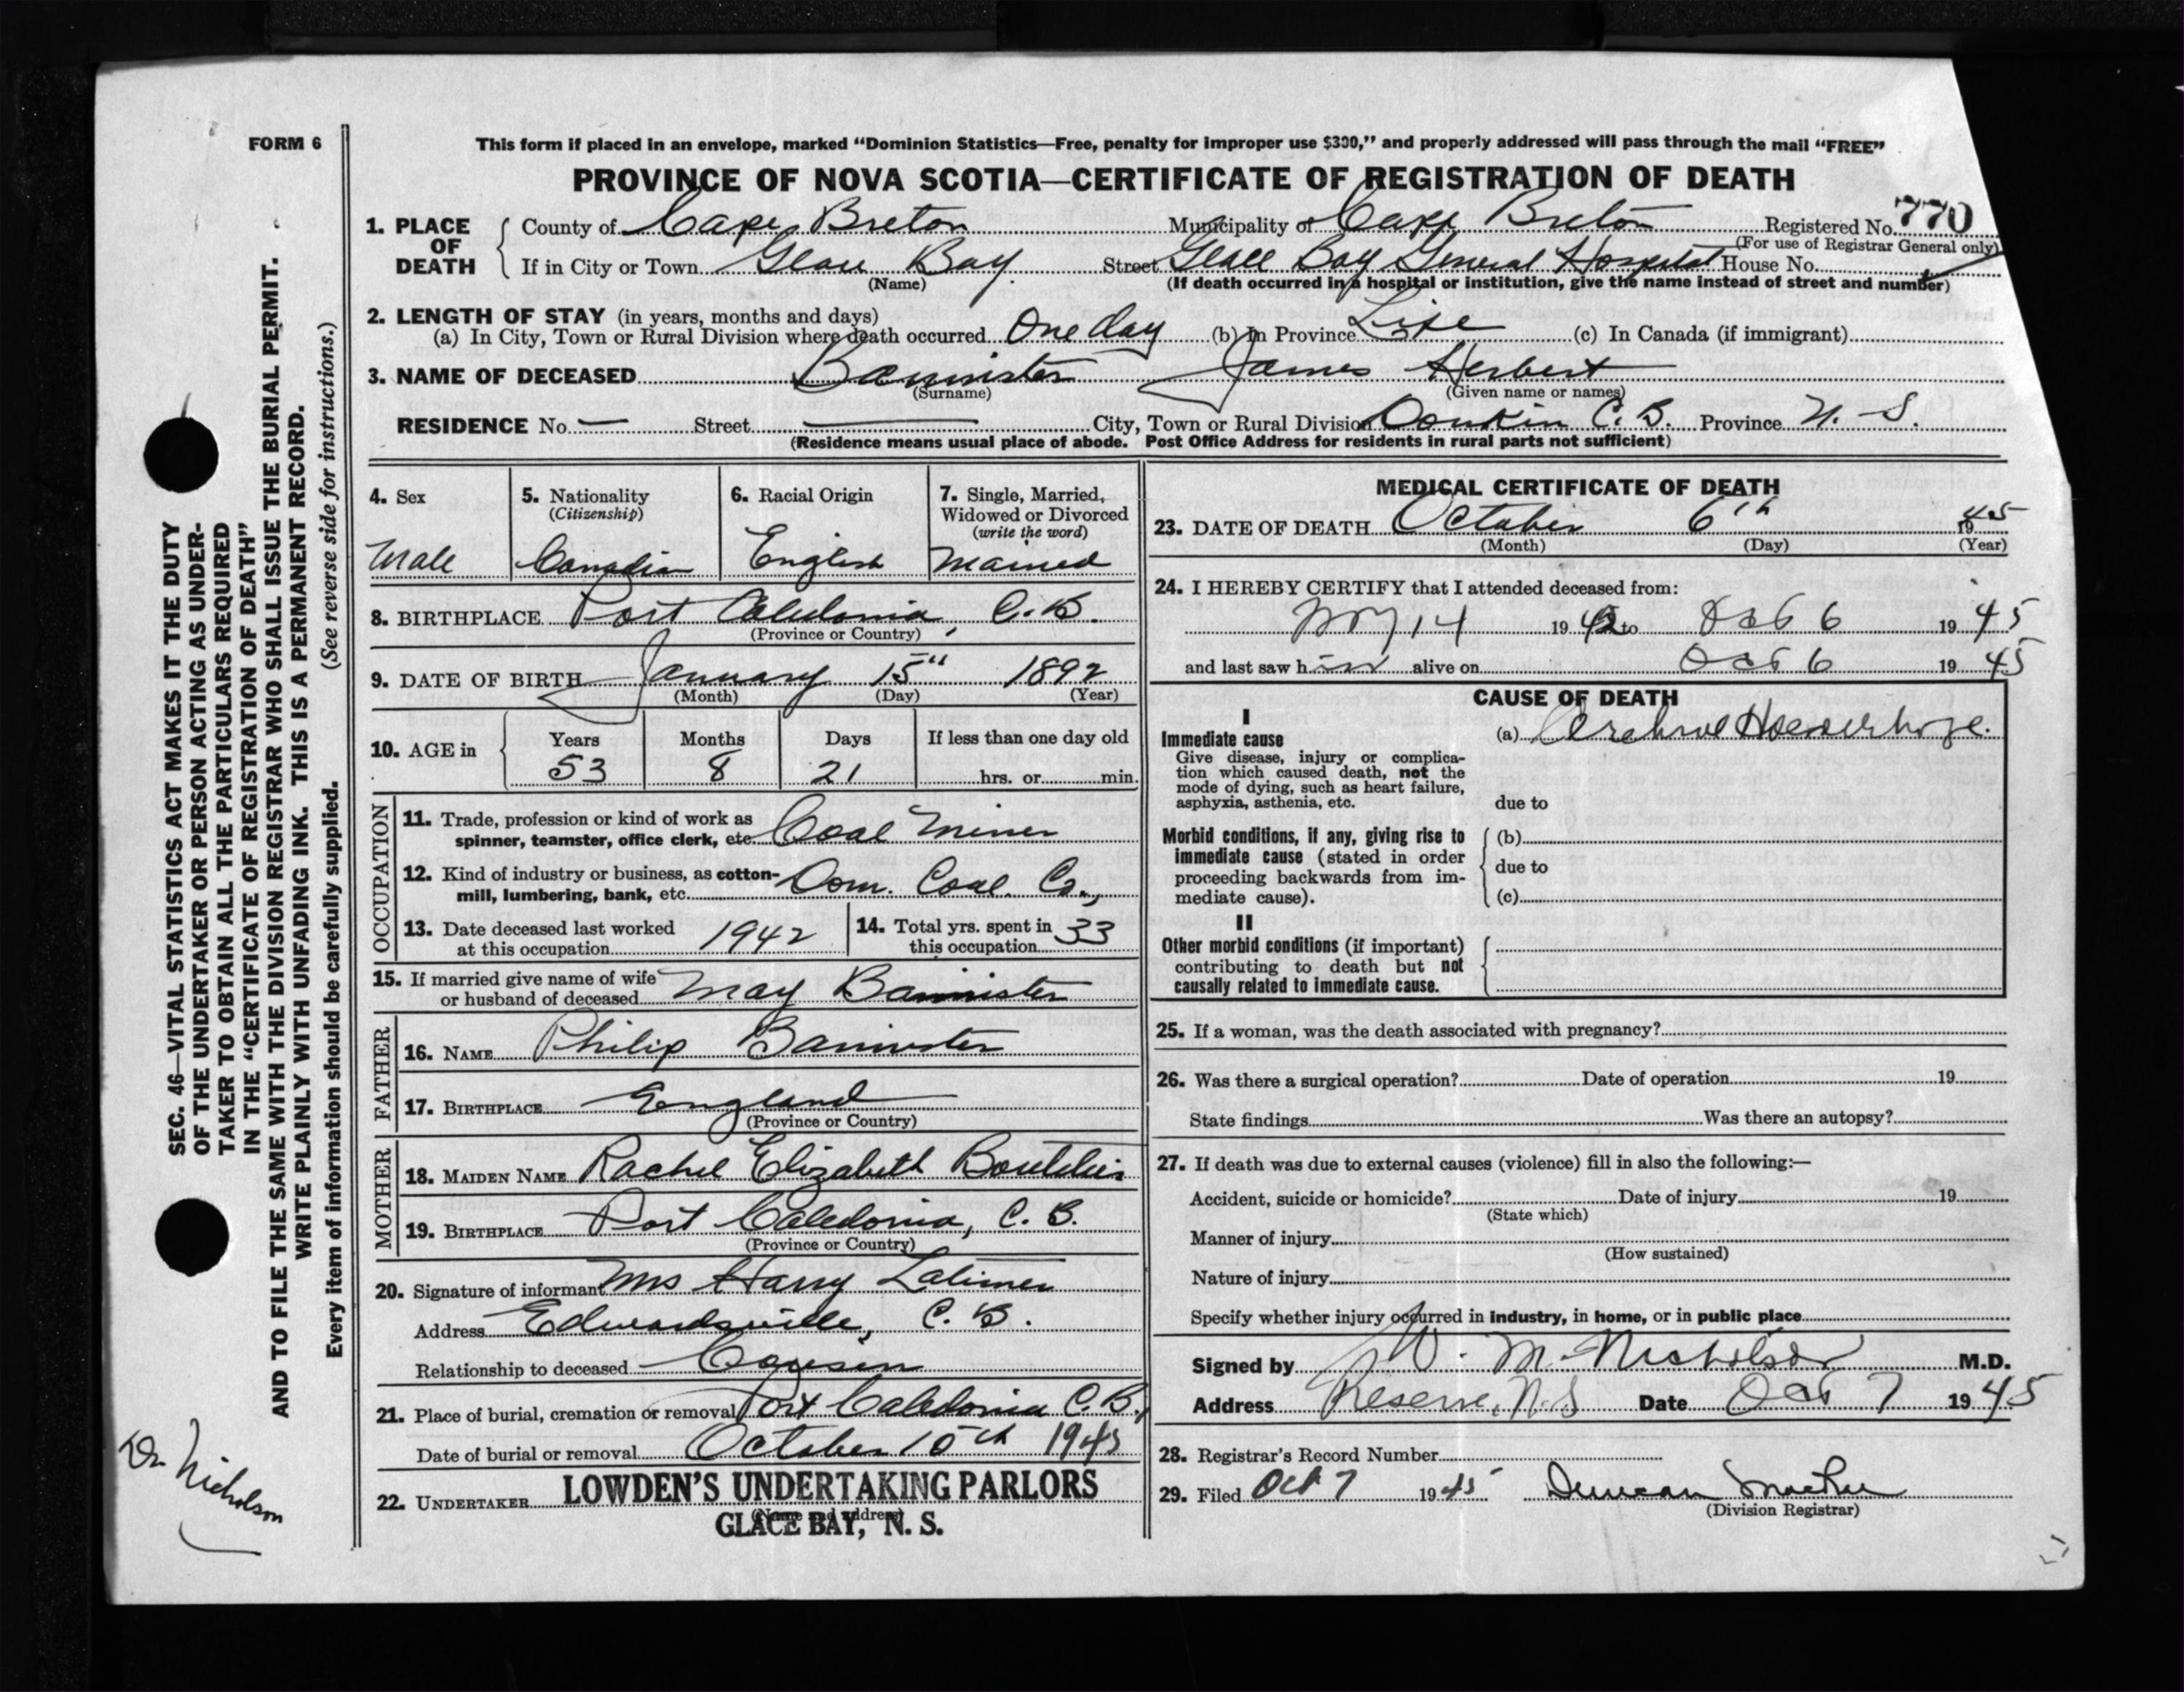 FORM 6
This form if placed in an envelope, marked “Dominion Statistics—Free, penalty for improper use $300,” and properly addressed will pass through the mail “FREE”
PROVINCE OF NOVA SCOTIA—CERTIFICATE OF REGISTRATION OF DEATH
1. PLACE OF DEATH
County of Cape Breton Municipality of Cape Breton Registered No. 770
(For use of Registrar General only)
If in City or Town Glace Bay Street Glace Bay General Hospital House No.
(Name) (If death occurred in a hospital or institution, give the name instead of street and number)
2. LENGTH OF STAY (in years, months and days)
(a) In City, Town or Rural Division where death occurred One day (b) In Province Life (c) In Canada (if immigrant)
3. NAME OF DECEASED Bannister James Herbert
(Surname) (Given name or names)
RESIDENCE No. — Street — City, Town or Rural Division Donkin C. B. Province N. S.
(Residence means usual place of abode. Post Office Address for residents in rural parts not sufficient)
4. Sex
Male
5. Nationality
(Citizenship)
Canadian
6. Racial Origin
English
7. Single, Married,
Widowed or Divorced
(write the word)
Married
8. BIRTHPLACE Port Caledonia, C. B.
(Province or Country)
9. DATE OF BIRTH January 15th 1892
(Month) (Day) (Year)
10. AGE in
Years Months Days If less than one day old
53 8 21 hrs. or min.
OCCUPATION
11. Trade, profession or kind of work as
spinner, teamster, office clerk, etc. Coal Miner
12. Kind of industry or business, as cotton-
mill, lumbering, bank, etc. Dom. Coal Co.,
13. Date deceased last worked
at this occupation 1942
14. Total yrs. spent in
this occupation 33
15. If married give name of wife
or husband of deceased May Bannister
FATHER
16. NAME Philip Bannister
17. BIRTHPLACE England
(Province or Country)
MOTHER
18. MAIDEN NAME Rachel Elizabeth Boutilier
19. BIRTHPLACE Port Caledonia, C. B.
(Province or Country)
20. Signature of informant Mrs Harry Latimer
Address Edwardsville, C. B.
Relationship to deceased Cousin
21. Place of burial, cremation or removal Port Caledonia C. B.,
Date of burial or removal October 10th 1945
22. UNDERTAKER LOWDEN'S UNDERTAKING PARLORS
(Name and address)
GLACE BAY, N. S.
MEDICAL CERTIFICATE OF DEATH
23. DATE OF DEATH October 6th 1945
(Month) (Day) (Year)
24. I HEREBY CERTIFY that I attended deceased from:
14 1942 to Oct 6 1945
and last saw him alive on Oct 6 1945
CAUSE OF DEATH
I
Immediate cause
Give disease, injury or complica-
tion which caused death, not the
mode of dying, such as heart failure,
asphyxia, asthenia, etc.
(a) Cerebral Hoemorrhage.
due to
Morbid conditions, if any, giving rise to
immediate cause (stated in order
proceeding backwards from im-
mediate cause).
(b)
due to
(c)
II
Other morbid conditions (if important)
contributing to death but not
causally related to immediate cause.
25. If a woman, was the death associated with pregnancy?
26. Was there a surgical operation? Date of operation 19
State findings Was there an autopsy?
27. If death was due to external causes (violence) fill in also the following:—
Accident, suicide or homicide? Date of injury 19
(State which)
Manner of injury
(How sustained)
Nature of injury
Specify whether injury occurred in industry, in home, or in public place
Signed by W. M. Nicholson M.D.
Address Reserve, N.S Date Oct 7 1945
28. Registrar's Record Number
29. Filed Oct 7 1945 Duncan MacRae
(Division Registrar)
SEC. 46—VITAL STATISTICS ACT MAKES IT THE DUTY
OF THE UNDERTAKER OR PERSON ACTING AS UNDER-
TAKER TO OBTAIN ALL THE PARTICULARS REQUIRED
IN THE “CERTIFICATE OF REGISTRATION OF DEATH”
AND TO FILE THE SAME WITH THE DIVISION REGISTRAR WHO SHALL ISSUE THE BURIAL PERMIT.
WRITE PLAINLY WITH UNFADING INK. THIS IS A PERMANENT RECORD.
Every item of information should be carefully supplied. (See reverse side for instructions.)
Dr. Nicholson